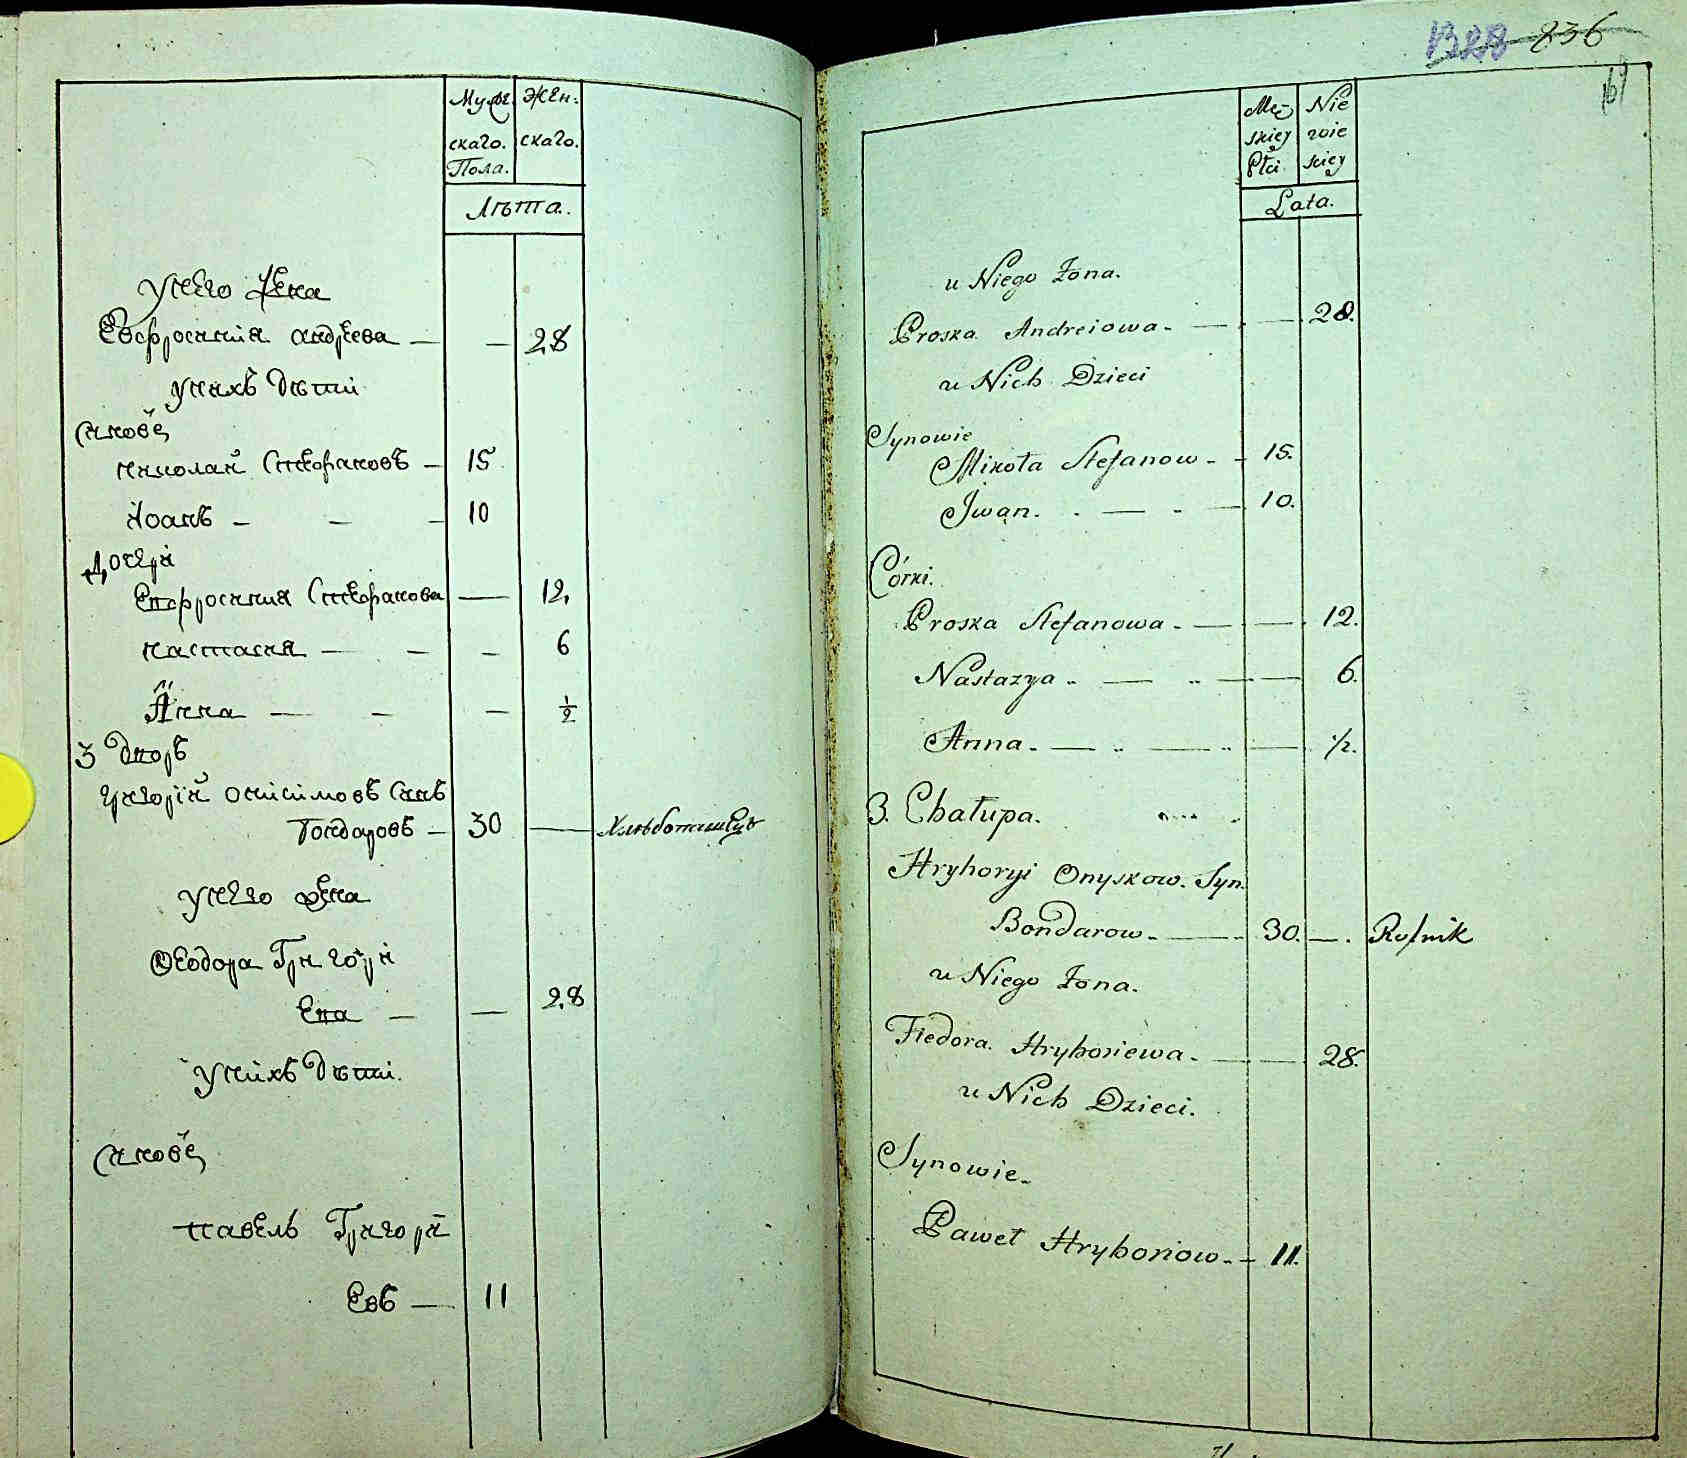 Мужс: Жен:
скаго. скаго.
Пола.
Лѣта.
унего жена
Евфросиніа андреева — — 28
унихъ дѣти
синовѣ
николай Стефановъ — 15
Іоанъ — — — 10
Дочери
Евфросиниа Стефанова — 12.
настасиа — — — 6
Анна — — — 1/2
3 дворъ
григорій онисімовъ синъ
бондаровъ — 30 — Хлѣбопашецъ
унего жена
Феодора Григорі
Ева — — 28
унихъ дѣти.
синовѣ
павелъ Григорі
Евъ — 11
836
161
Mę- Nie
skiey wie
Płci. skiey
Lata.
u Niego Żona.
Proska Andreiowa. — — 28.
u Nich Dzieci
Synowie
Mikoła Stefanow. - 15.
Jwan. — — 10.
Córki.
Proska Stefanowa. — — 12.
Nastazya .. — .. — — 6.
Anna. — .. — .. — 1/2.
3. Chałupa.
Hryhoryi Onyskow. Syn.
Bondarow. — 30. — . Rolnik
u Niego Żona.
Fiedora. Hryhoriewa. — — 28.
u Nich Dzieci.
Synowie.
Paweł Hryhoriow. - 11.